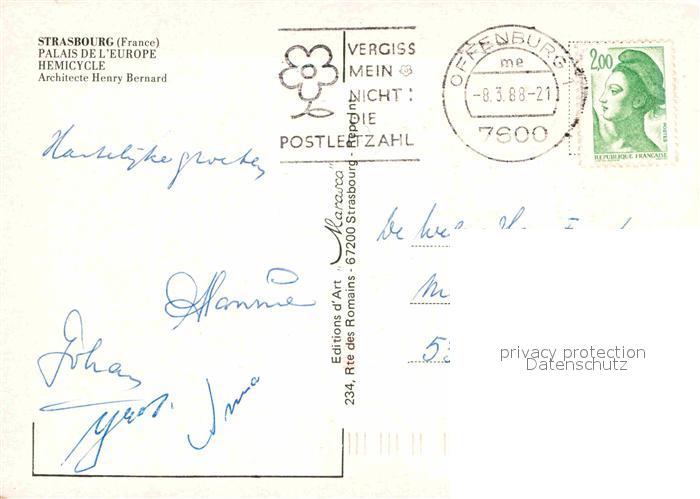 STRASBOURG (France)
PALAIS DE L'EUROPE
HEMICYCLE
Architecte Henry Bernard
VERGISS
MEIN
NICHT:
DIE
POSTLEITZAHL
OFFENBURG 1
me
-8.3.88-21
7600
2,00
POSTES
REPUBLIQUE FRANÇAISE
Hartelijke groeten
Johan
Irma
Editions d'Art "Marasco"
234, Rte des Romains - 67200 Strasbourg -
De
M
53
privacy protection
Datenschutz